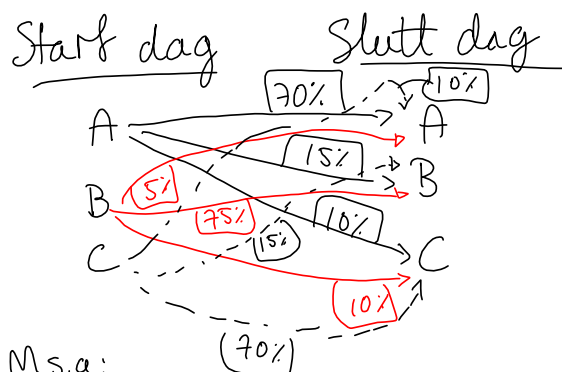 Start dag Slutt dag
70% 10%
A A
15%
B B
5%
75% 10%
15%
C C
10%
70%
M s.a: